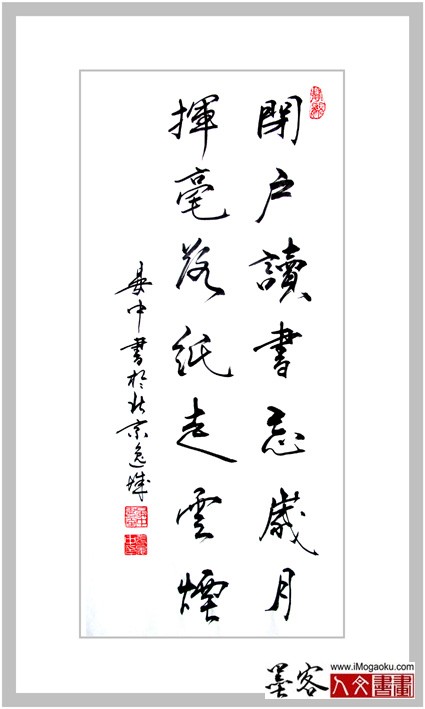 閉戶讀書忘歲月
揮毫落紙走雲煙
晏中書於北京逸城
墨客
www.iMogaoku.com
人文書畫